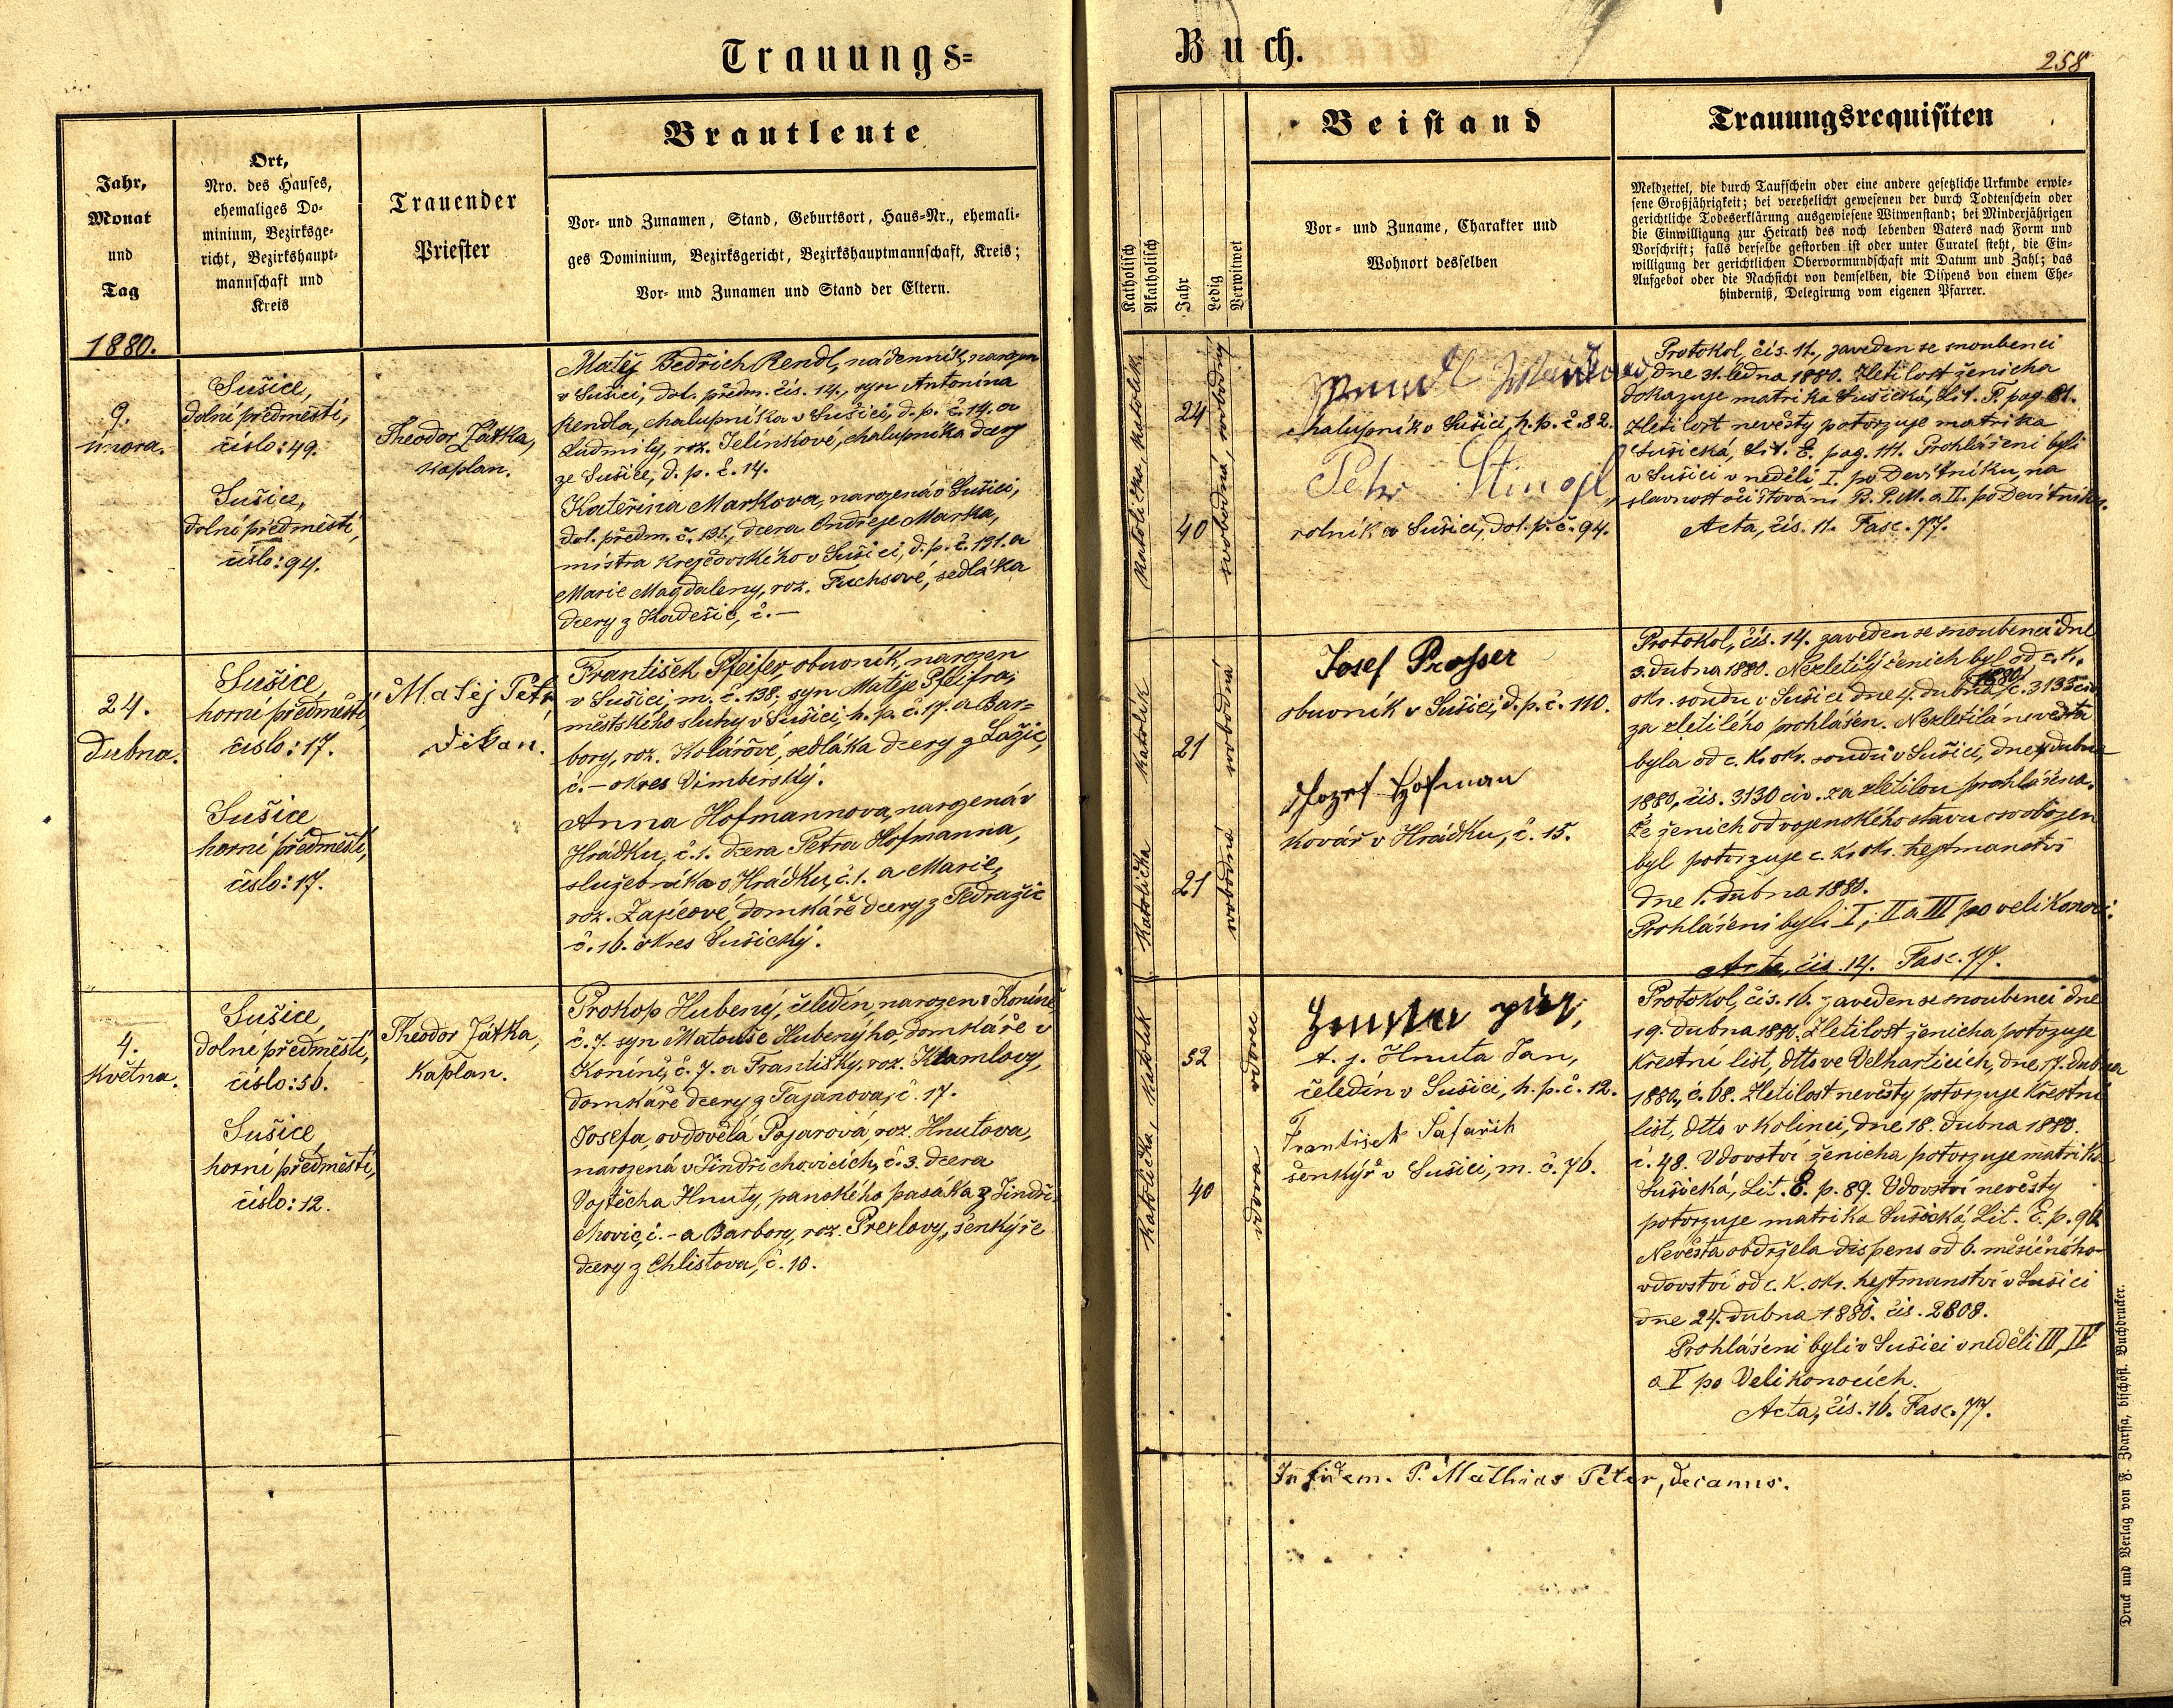 Trauungs=
Buch.
258
Jahr,
Monat
und
Tag
Ort,
Nro. des Hauses,
ehemaliges Do-
minium, Bezirksge-
richt, Bezirkshaupt-
mannschaft und
Kreis
Trauender
Priester
Brautleute
Vor- und Zunamen, Stand, Geburtsort, Haus-Nr., ehemali-
ges Dominium, Bezirksgericht, Bezirkshauptmannschaft, Kreis;
Vor- und Zunamen und Stand der Eltern.
Katholisch
Akatholisch
Jahr
Ledig
Verwitwet
Beistand
Vor- und Zuname, Charakter und
Wohnort desselben
Trauungsrequisiten
Meldzettel, die durch Taufschein oder eine andere gesetzliche Urkunde erwie-
sene Großjährigkeit; bei verehelicht gewesenen der durch Todtenschein oder
gerichtliche Todeserklärung ausgewiesene Witwenstand; bei Minderjährigen
die Einwilligung zur Heirath des noch lebenden Vaters nach Form und
Vorschrift; falls derselbe gestorben ist oder unter Curatel steht, die Ein-
willigung der gerichtlichen Obervormundschaft mit Datum und Zahl; das
Aufgebot oder die Nachsicht von demselben, die Dispens von einem Ehe-
hinderniß, Delegirung vom eigenen Pfarrer.
1880.
9.
února.
Sušice,
dolní předměstí,
číslo: 49.
Sušice,
dolní předměstí,
číslo: 94.
Theodor Zátka,
kaplan.
Matěj Bedřich Rendl, nádenník, narozen
v Sušici, dol. předm. čís. 14., syn Antonína
Rendla, chalupníka v Sušici, d. p. č. 14. a
Ludmily, roz. Jelínkové, chalupníka dcery
ze Sušice, d. p. č. 14.
Kateřina Markova, narozená v Sušici,
dol. předm. č. 191., dcera Ondřeje Marka,
mistra krejčovského v Sušici, d. p. č. 191. a
Marie Magdaleny, roz. Fuchsové, sedláka
dcery z Kadešic, č. —
katolička, katolík
24
40
svobodná, svobodný
chalupník v Sušici, h. p. č. 82.
Petr Stingl,
rolník v Sušici, dol. p. č. 94.
Protokol, čís. 11., zaveden se snoubenci
dne 31. ledna 1880. Zletilost ženicha
dokazuje matrika Sušická, Lit. F. pag. 81.
Zletilost nevěsty potvrzuje matrika
Sušická, Lit. E. pag. 141. Prohlášeni byli
v Sušici v neděli I. po Devítníku, na
slavnost očišťování B. P. M. a II. po Devítníku.
Acta, čís. 11. Fasc. 77.
24.
Dubna.
Sušice,
horní předměstí,
číslo: 17.
Sušice
horní předměstí,
číslo: 17.
Matěj Petr,
děkan.
František Pfeifer, obuvník, narozen
v Sušici, m. č. 138; syn Matěje Pfeifra,
městského sluhy v Sušici, h. p. č. 17. a Bar=
bory, roz. Kolářové, sedláka dcery z Lažic,
č. — okres Vimberský.
Anna Hofmannova, narozená v
Hrádku, č. 1. dcera Petra Hofmanna,
služebníka v Hrádku, č. 1. a Marie,
roz. Zajícové, domkáře dcery z Tedražic
č. 16. okres Sušický.
katolička katolík
21
21
svobodná svobodná
Josef Prosser
obuvník v Sušici, d. p. č. 110.
Jozef Hofman
kovář v Hrádku, č. 15.
Protokol, čís. 14. zaveden se snoubenci dne
3. dubna 1880. Nezletilý ženich byl od c. k.
okr. soudu v Sušici dne 4. dubna 1880, č. 3135 civ.
za zletilého prohlášen. Nezletilá nevěsta
byla od c. k. okr. soudu v Sušici, dne 4. dubna
1880, čís. 3130 civ. za zletilou prohlášena.
Že ženich od vojenského stavu svobozen
byl potvrzuje c. k. okr. hejtmanství
dne 1. dubna 1880.
Prohlášeni byli I, II a III po velikonoci.
Acta, čís. 14. Fasc. 77.
4.
Května.
Sušice,
dolní předměstí,
číslo: 56.
Sušice,
horní předměstí,
číslo: 12.
Theodor Zátka,
kaplan.
Prokop Hubený, čeledín, narozen v Koníně,
č. 7. syn Matouše Hubenýho, domkáře v
Koníně, č. 7. a Františky, roz. Klamlovy,
domkáře dcery z Tajanova, č. 17.
Josefa, ovdovělá Pojarová, roz. Hnutova,
narozená v Jindřichovicích, č. 3. dcera
Vojtěcha Hnuty, panského pasáka z Jindři-
chovic, č. — a Barbory, roz. Prexlovy, šenkýře
dcery z Chlistova, č. 10.
katolička, katolík
52
40
vdova vdovec
t. j. Hnuta Jan,
čeledín v Sušici, h. p. č. 12.
František Šafařík
šenkýř v Sušici, m. č. 76.
Protokol, čís. 16. zaveden se snoubenci dne
19. dubna 1880. Zletilost ženicha potvrzuje
křestní list, dtto ve Velharticích, dne 17. dubna
1880, č. 68. Zletilost nevěsty potvrzuje křestní
list, dtto v Kolinci, dne 18. dubna 1880.
č. 48. Vdovství ženicha potvrzuje matrika
Sušická, Lit. E. p. 89. Vdovství nevěsty
potvrzuje matrika Sušická, Lit. E. p. 96
Nevěsta obdržela dispens od 6. měsíčního
vdovství od c. k. okr. hejtmanství v Sušici
dne 24. dubna 1880. čís. 2808.
Prohlášeni byli v Sušici v neděli III, IV
a V po Velikonocích.
Acta, čís. 16. Fasc. 77.
In fidem. P. Mathias Peter, decanus.
Druck und Verlag von F. Zdarssa, bischöfl. Buchdrucker.